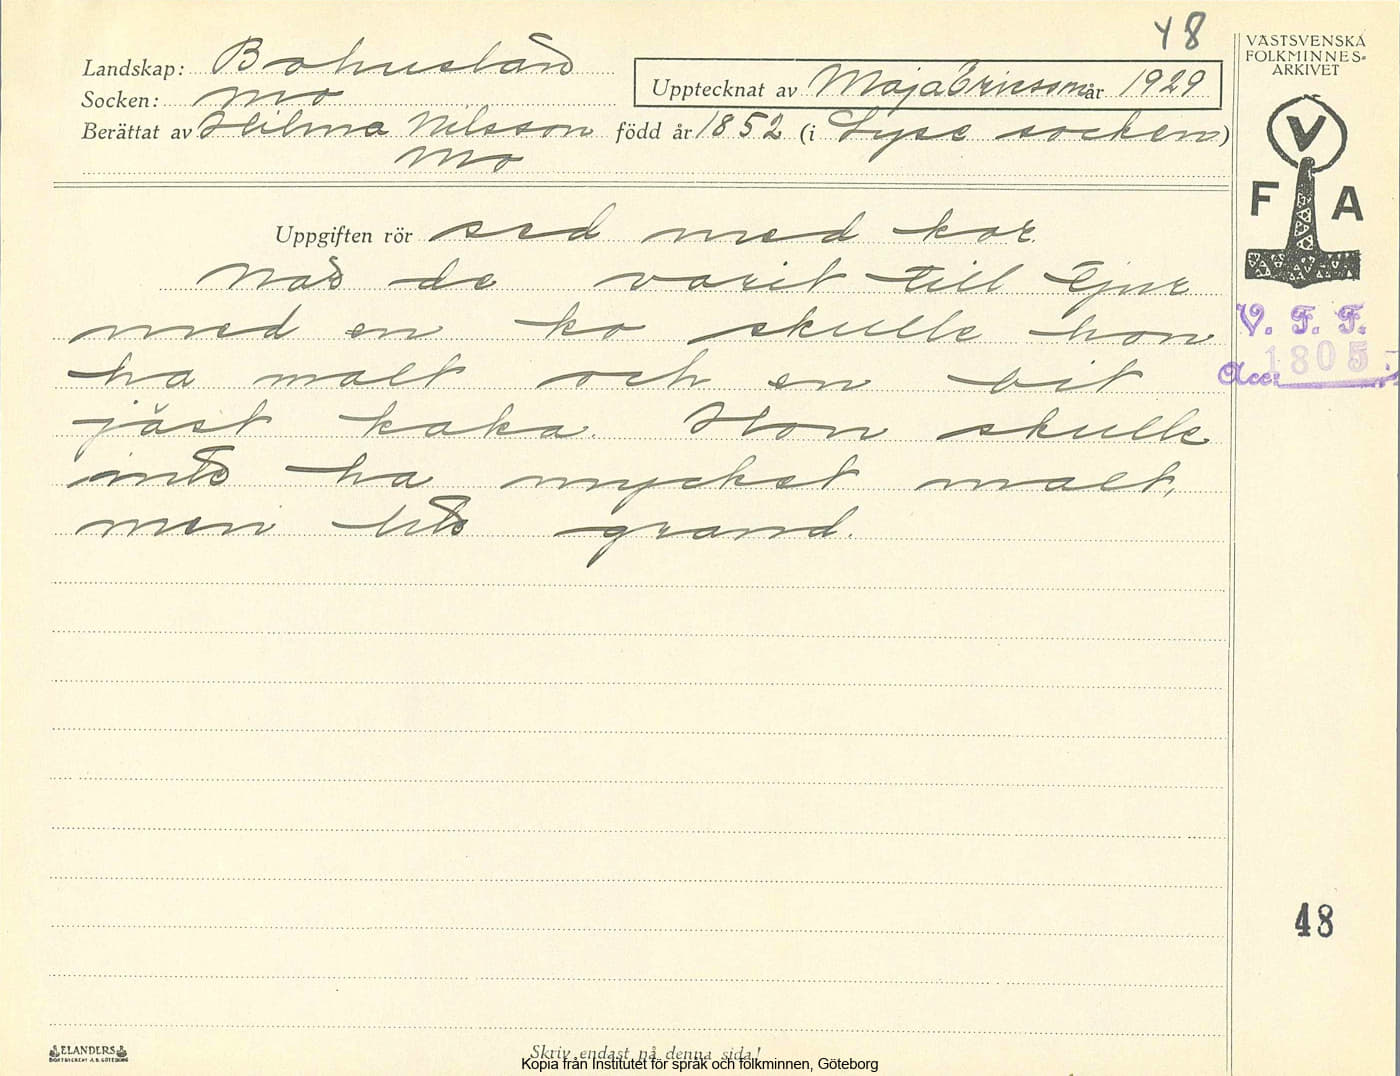 48
Landskap: Bohuslän
Socken: Mo
Upptecknat av Maja Ericsson år 1929
Berättat av Hilma Nilsson född år 1852 (i Lyse socken)
Mo
VÄSTSVENSKA
FOLKMINNES-
ARKIVET
V
F A
V. F. F.
Acc: 1805
Uppgiften rör sed med kor.
När de varit till tjur
med en ko skulle hon
ha malt och en bit
jäst kaka. Hon skulle
inte ha mycket malt,
men lite grand.
48
ELANDERS
BOKTRYCKERI A.B. GÖTEBORG
Skriv endast på denna sida!
Kopia från Institutet för språk och folkminnen, Göteborg